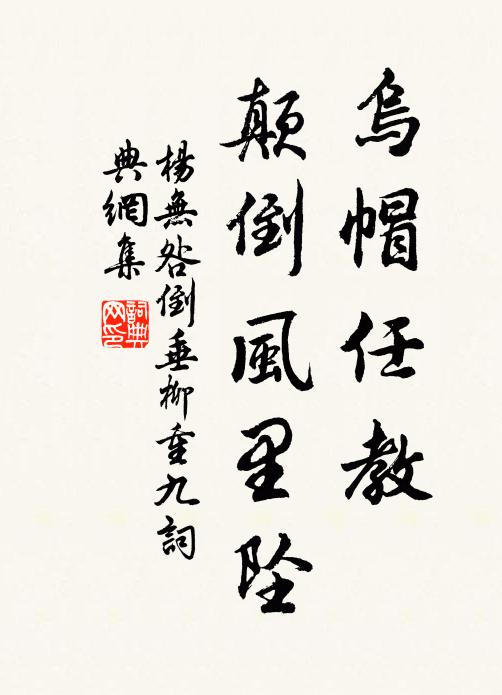 烏帽任教
顛倒風里墜
楊無咎倒垂柳重九詞
典網集
詞典網印